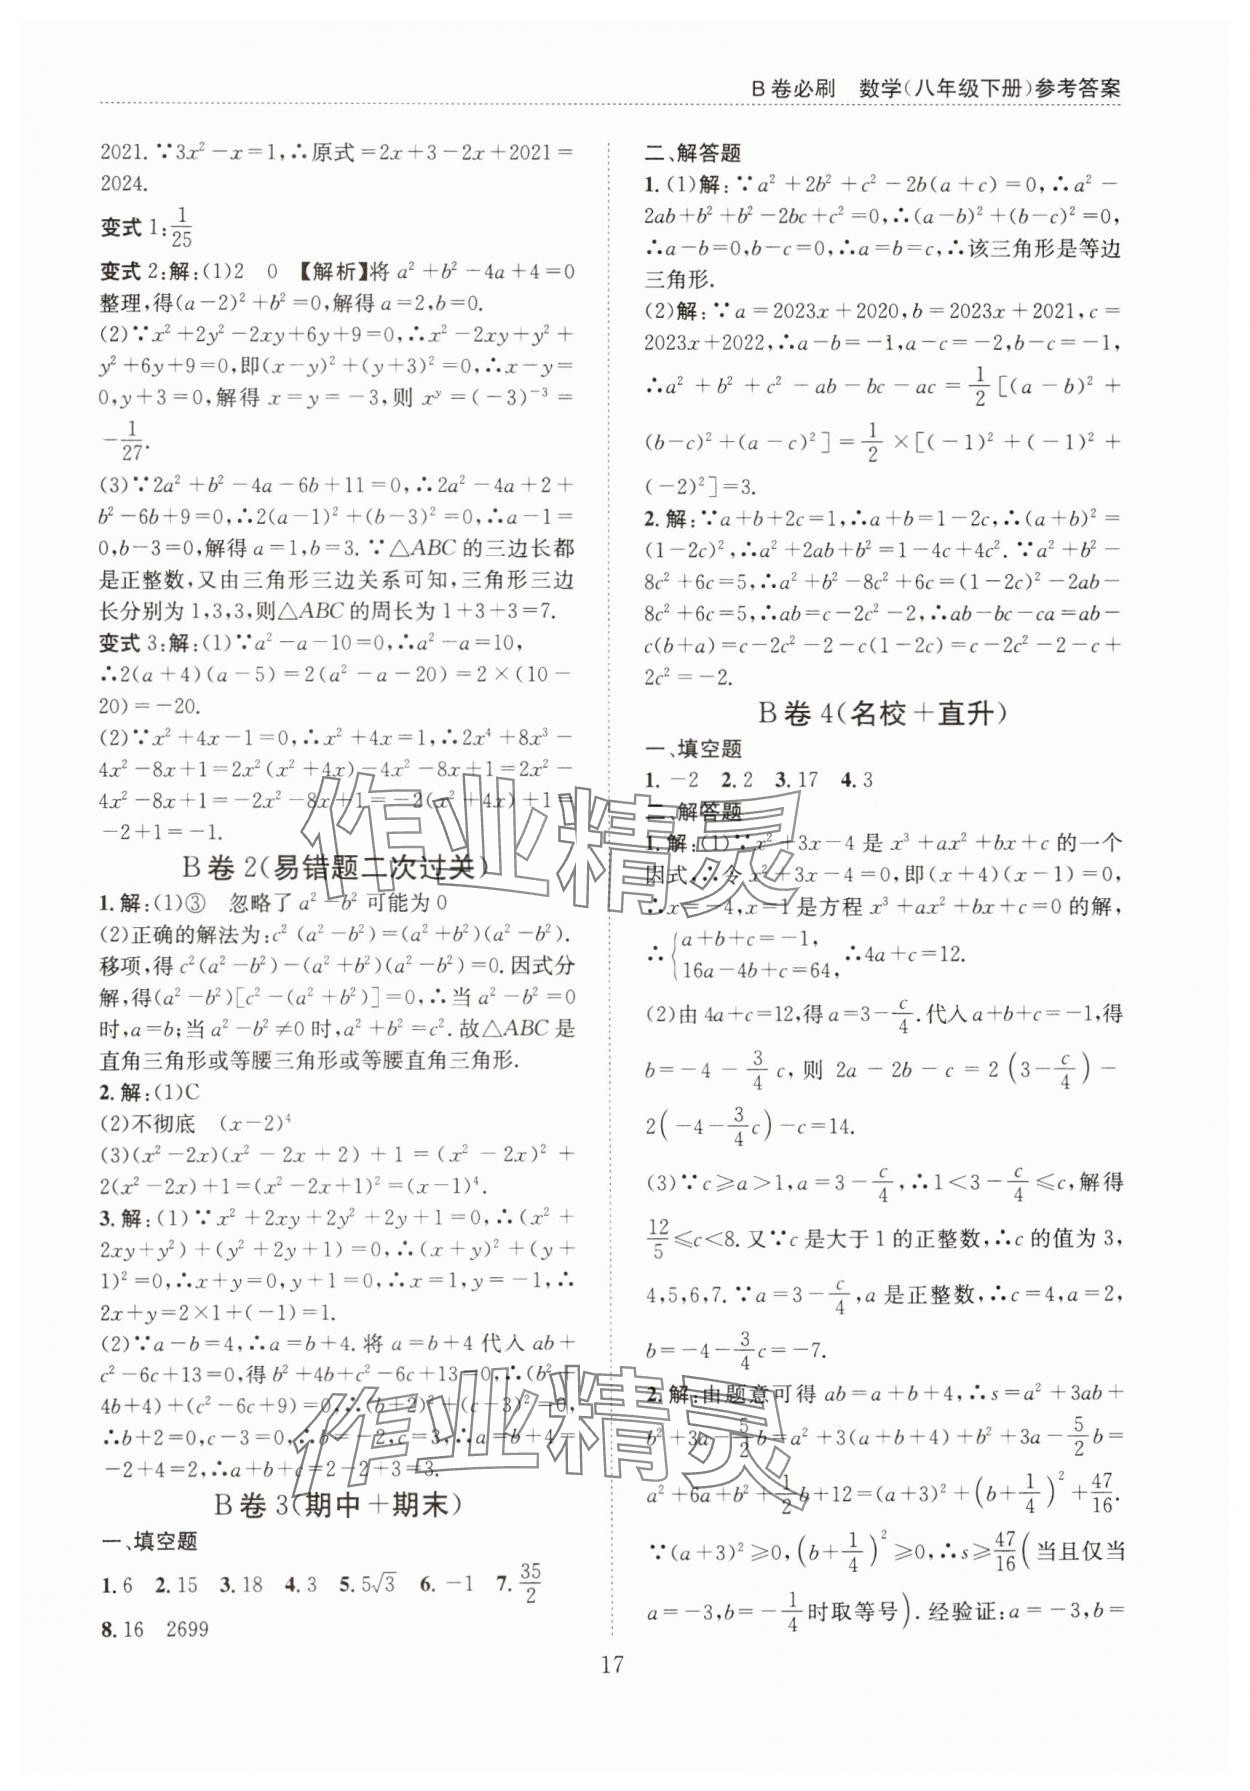 B卷必刷 数学(八年级下册)参考答案
2021.∵3x²-x=1,∴原式=2x+3-2x+2021=
2024.
变式1:1/25
变式2:解:(1)2 0 【解析】将a²+b²-4a+4=0
整理,得(a-2)²+b²=0,解得a=2,b=0.
(2)∵x²+2y²-2xy+6y+9=0,∴x²-2xy+y²+
y²+6y+9=0,即(x-y)²+(y+3)²=0,∴x-y=
0,y+3=0,解得x=y=-3,则xʸ=(-3)⁻³=
-1/27.
(3)∵2a²+b²-4a-6b+11=0,∴2a²-4a+2+
b²-6b+9=0,∴2(a-1)²+(b-3)²=0,∴a-1=
0,b-3=0,解得a=1,b=3.∵△ABC的三边长都
是正整数,又由三角形三边关系可知,三角形三边
长分别为1,3,3,则△ABC的周长为1+3+3=7.
变式3:解:(1)∵a²-a-10=0,∴a²-a=10,
∴2(a+4)(a-5)=2(a²-a-20)=2×(10-
20)=-20.
(2)∵x²+4x-1=0,∴x²+4x=1,∴2x⁴+8x³-
4x²-8x+1=2x²(x²+4x)-4x²-8x+1=2x²-
4x²-8x+1=-2x²-8x+1=-2(x²+4x)+1=
-2+1=-1.
B卷2(易错题二次过关)
1.解:(1)③ 忽略了a²-b²可能为0
(2)正确的解法为:c²(a²-b²)=(a²+b²)(a²-b²).
移项,得c²(a²-b²)-(a²+b²)(a²-b²)=0.因式分
解,得(a²-b²)[c²-(a²+b²)]=0,∴当a²-b²=0
时,a=b;当a²-b²≠0时,a²+b²=c².故△ABC是
直角三角形或等腰三角形或等腰直角三角形.
2.解:(1)C
(2)不彻底 (x-2)⁴
(3)(x²-2x)(x²-2x+2)+1=(x²-2x)²+
2(x²-2x)+1=(x²-2x+1)²=(x-1)⁴.
3.解:(1)∵x²+2xy+2y²+2y+1=0,∴(x²+
2xy+y²)+(y²+2y+1)=0,∴(x+y)²+(y+
1)²=0,∴x+y=0,y+1=0,∴x=1,y=-1,∴
2x+y=2×1+(-1)=1.
(2)∵a-b=4,∴a=b+4.将a=b+4代入ab+
c²-6c+13=0,得b²+4b+c²-6c+13=0,∴(b²+
4b+4)+(c²-6c+9)=0,∴(b+2)²+(c-3)²=0,
∴b+2=0,c-3=0,∴b=-2,c=3,∴a=b+4=
-2+4=2,∴a+b+c=2-2+3=3.
B卷3(期中+期末)
一、填空题
1.6 2.15 3.18 4.3 5.5√3 6.-1 7.35/2
8.16 2699
二、解答题
1.(1)解:∵a²+2b²+c²-2b(a+c)=0,∴a²-
2ab+b²+b²-2bc+c²=0,∴(a-b)²+(b-c)²=0,
∴a-b=0,b-c=0,∴a=b=c,∴该三角形是等边
三角形.
(2)解:∵a=2023x+2020,b=2023x+2021,c=
2023x+2022,∴a-b=-1,a-c=-2,b-c=-1,
∴a²+b²+c²-ab-bc-ac=1/2[(a-b)²+
(b-c)²+(a-c)²]=1/2×[(-1)²+(-1)²+
(-2)²]=3.
2.解:∵a+b+2c=1,∴a+b=1-2c,∴(a+b)²=
(1-2c)²,∴a²+2ab+b²=1-4c+4c².∵a²+b²-
8c²+6c=5,∴a²+b²-8c²+6c=(1-2c)²-2ab-
8c²+6c=5,∴ab=c-2c²-2,∴ab-bc-ca=ab-
c(b+a)=c-2c²-2-c(1-2c)=c-2c²-2-c+
2c²=-2.
B卷4(名校+直升)
一、填空题
1.-2 2.2 3.17 4.3
二、解答题
1.解:(1)∵x²+3x-4是x³+ax²+bx+c的一个
因式,∴令x²+3x-4=0,即(x+4)(x-1)=0,
∴x=-4,x=1是方程x³+ax²+bx+c=0的解,
∴{a+b+c=-1, 16a-4b+c=64, ∴4a+c=12.
(2)由4a+c=12,得a=3-c/4.代入a+b+c=-1,得
b=-4-3/4c,则2a-2b-c=2(3-c/4)-
2(-4-3/4c)-c=14.
(3)∵c≥a>1,a=3-c/4,∴1<3-c/4≤c,解得
12/5≤c<8.又∵c是大于1的正整数,∴c的值为3,
4,5,6,7.∵a=3-c/4,a是正整数,∴c=4,a=2,
b=-4-3/4c=-7.
2.解:由题意可得ab=a+b+4,∴s=a²+3ab+
b²+3a-5/2b=a²+3(a+b+4)+b²+3a-5/2b=
a²+6a+b²+1/2b+12=(a+3)²+(b+1/4)²+47/16.
∵(a+3)²≥0,(b+1/4)²≥0,∴s≥47/16(当且仅当
a=-3,b=-1/4时取等号).经验证:a=-3,b=
17
作业精灵
作业精灵